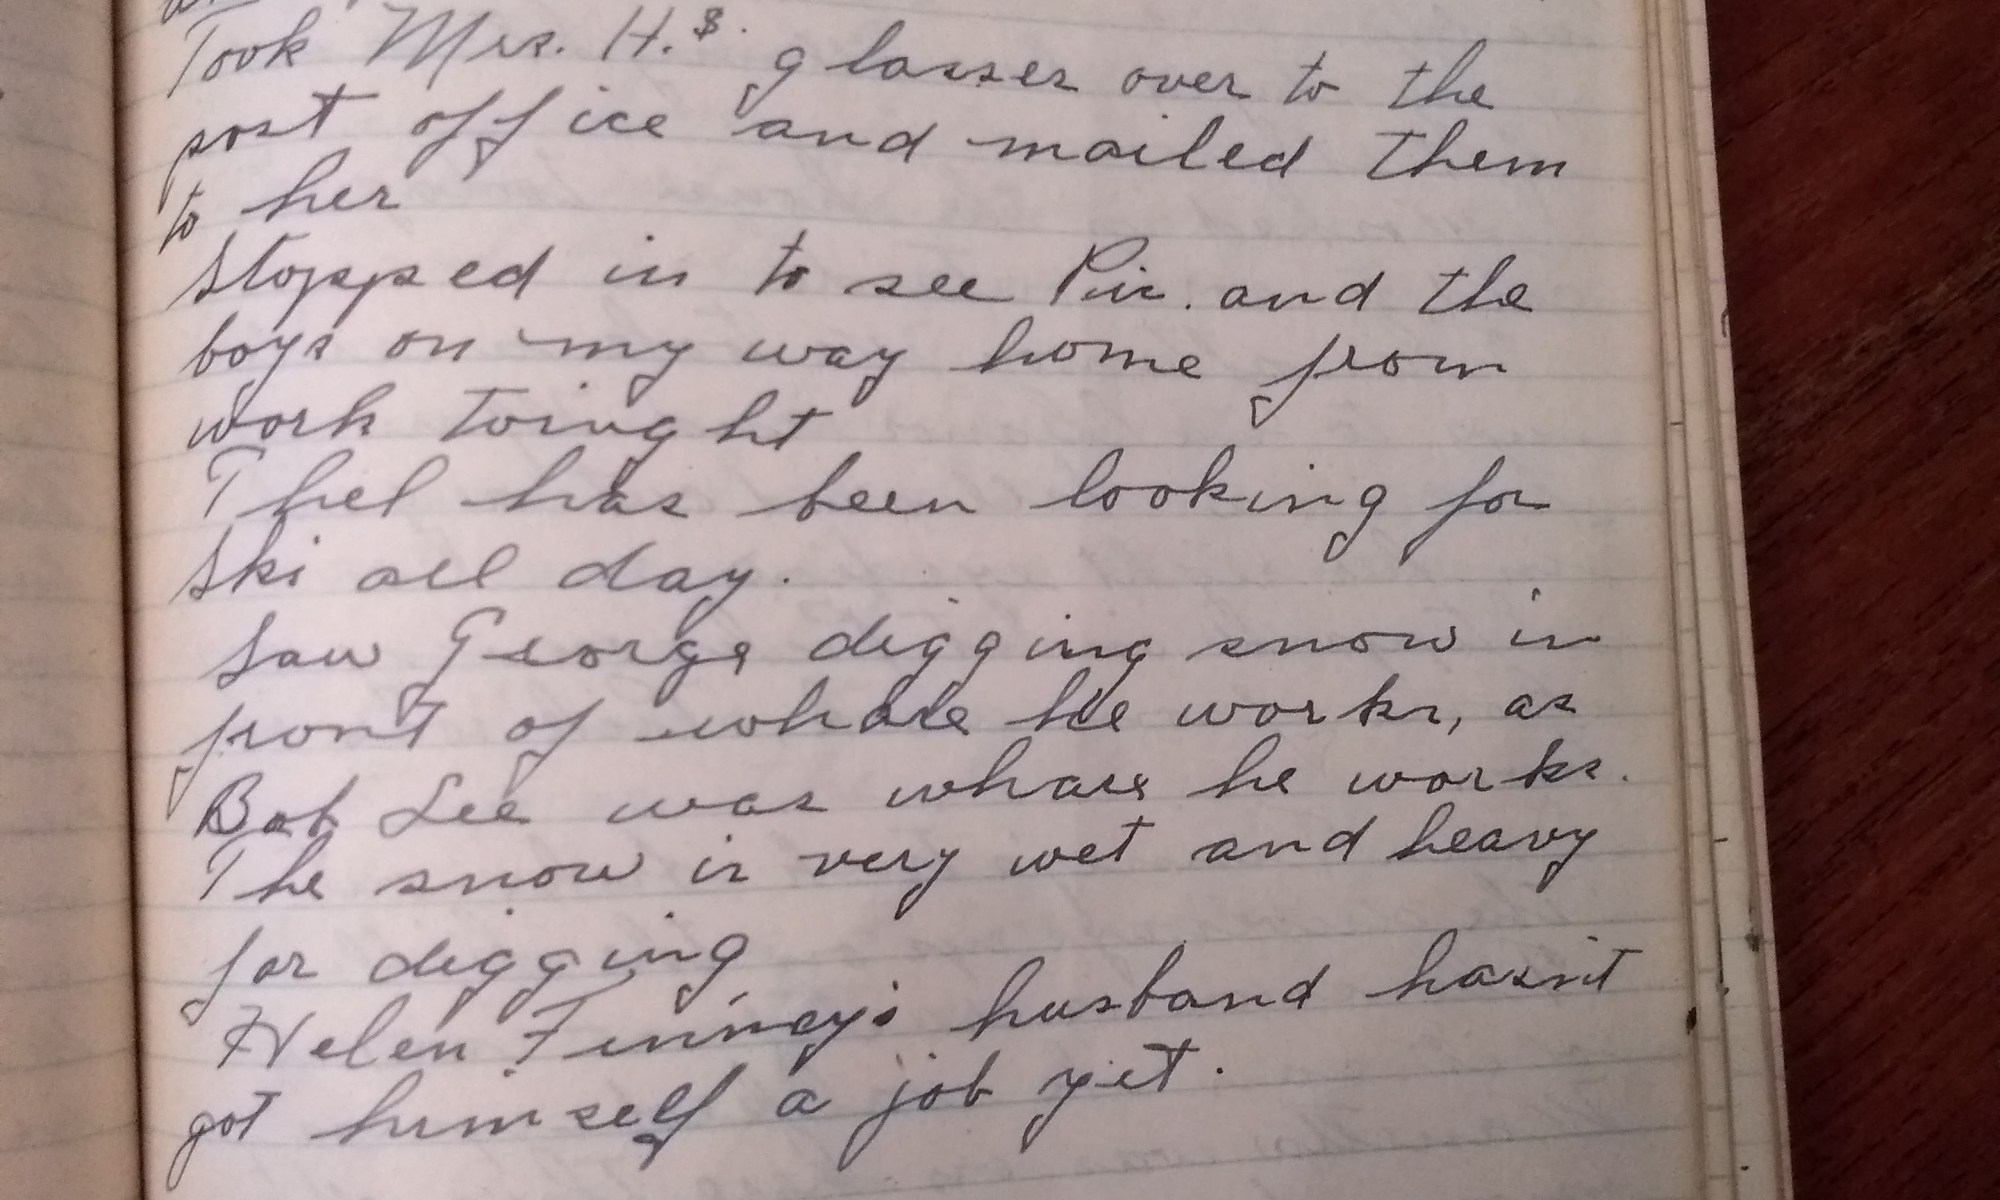 Took Mrs. H.s. glasses over to the
post office and mailed them
to her
Stopped in to see Pin. and the
boys on my way home from
work toinght
Thel has been looking for
Ski all day.
Saw George digging snow in
front of whare he works, as
Bob Lee was whare he works.
The snow is very wet and heavy
for digging
Helen Finney's husband hasn't
got himself a job yet.